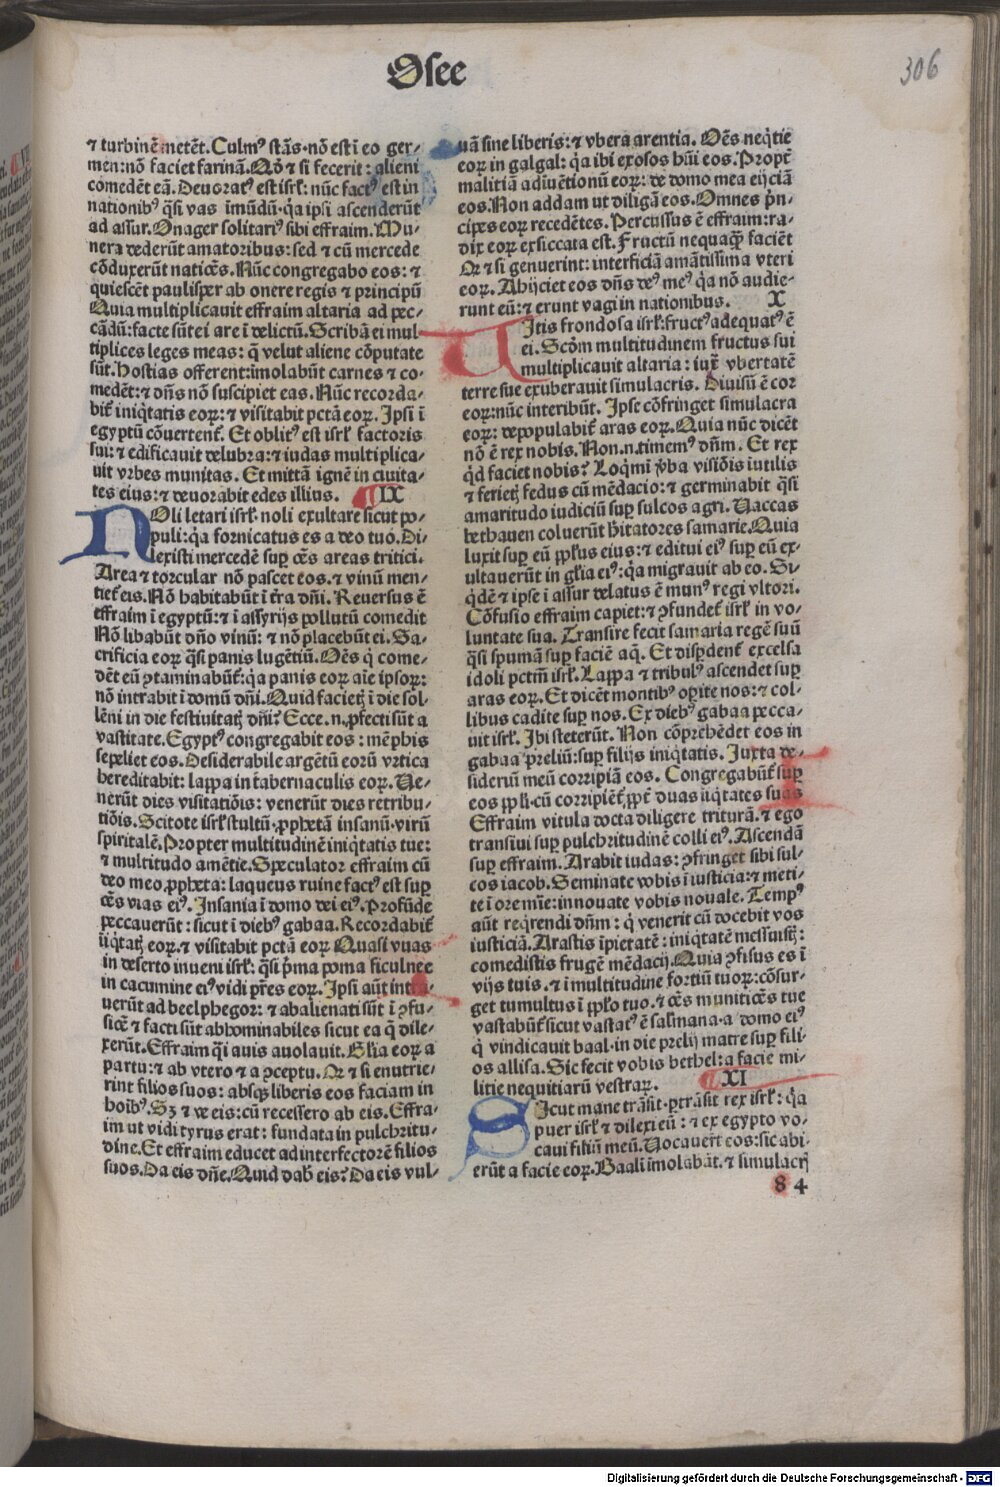 Osee
306
⁊ turbinē metēt. Culmꝰ stās nō est ī eo ger-
men: nō faciet farinā. Qđ ⁊ si fecerit: alieni
comedēt eā. Deuoratꝰ est isrl: nūc factꝰ est in
nationibꝰ q̄si vas īmūdū. q̄a ipsi ascenderūt
ad assur. Onager solitariꝰ sibi effraim. Mu-
nera dederūt amatoribus: sed ⁊ cū mercede
cōduxerūt natiōes. Nūc congregabo eos: ⁊
quiescēt paulisper ab onere regis ⁊ principū
Quia multiplicauit effraim altaria ad pec-
cādū: facte sūt ei are ī delictū. Scribā ei mul-
tiplices leges meas: q̄ velut aliene cōputate
sūt. Hostias offerent: īmolabūt carnes ⁊ co-
medēt: ⁊ dn̄s nō suscipiet eas. Nūc recorda-
bit̄ iniq̄tatis eoꝝ: ⁊ visitabit pctā eoꝝ. Ipsi ī
egyptū cōuertent̄. Et oblitꝰ est isrl factoris
sui: ⁊ edificauit delubra: ⁊ iudas multiplica-
uit vrbes munitas. Et mittā ignē in ciuita-
tes eius: ⁊ deuorabit edes illius. IX
NOli letari isrl noli exultare sicut po-
puli: q̄a fornicatus es a deo tuo. Di-
lexisti mercedē sup oēs areas tritici.
Area ⁊ torcular nō pascet eos. ⁊ vinū men-
tiet̄ eis. Nō habitabūt ī t̄ra dn̄i. Reuersus ē
effraim ī egyptū: ⁊ ī assyrijs pollutū comedit
Nō libabūt dn̄o vinū: ⁊ nō placebūt ei. Sa-
crificia eoꝝ q̄si panis lugētiū. Oēs q̇ come-
dēt eū ꝯtaminabūt̄: q̄a panis eoꝝ aīe ipsoꝝ:
nō intrabit ī domū dn̄i. Quid facietꝭ ī die sol-
lēni in die festiuitatꝭ dn̄i? Ecce.n. ꝓfecti sūt a
vastitate. Egyptꝰ congregabit eos: mēphis
sepeliet eos. Desiderabile argētū eorū vrtica
hereditabit: lappa in t̄abernaculis eoꝝ. Ve-
nerūt dies visitatiōis: venerūt dies retribu-
tiōis. Scitote isrl stultū ꝓphetā insanū virū
spiritalē. Propter multitudinē iniq̄tatis tue:
⁊ multitudo amētie. Speculator effraim cū
deo meo. ꝓpheta: laqueus ruine factꝰ est sup
oēs vias eiꝰ. Insania ī domo dei eiꝰ. Profūde
peccauerūt: sicut ī diebꝰ gabaa. Recordabit̄
iīq̄tatꝭ eoꝝ. ⁊ visitabit pctā eoꝝ Quasi vuas
in deserto inueni isrl: q̄si p̄ma poma ficulnee
in cacumine eiꝰ vidi pr̄es eoꝝ. Ipsi aūt intra-
uerūt ad beelphegor: ⁊ abalienati sūt ī ꝯfu-
siōē ⁊ facti sūt abbominabiles sicut ea q̄ dile-
xerūt. Effraim q̄si auis auolauit. Glīa eoꝝ a
partu: ⁊ ab vtero ⁊ a ꝯceptu. Qꝛ ⁊ si enutrie-
rint filios suos: absqꝫ liberis eos faciam in
hoībꝰ. Sꝫ ⁊ ve eis: cū recessero ab eis. Effra-
im ut vidi tyrus erat: fundata in pulchritu-
dine. Et effraim educet ad interfectorē filios
suos. Da eis dn̄e. Quid dab̄ eis? Da eis vul-
uā sine liberis: ⁊ vbera arentia. Oēs neq̇tie
eoꝝ in galgal: q̄a ibi exosos hūi eos. Propt̄
malitiā adīuētionū eoꝝ: de domo mea eijciā
eos. Non addam ut diligā eos. Omnes p̄n-
cipes eoꝝ recedētes. Percussus ē effraim: ra-
dix eoꝝ exsiccata est. Fructū nequaqꝫ faciēt
Qꝛ ⁊ si genuerint: interficiā amātissima vteri
eoꝝ. Abijciet eos dn̄s deꝰ meꝰ q̄a nō audie-
runt eū: ⁊ erunt vagi in nationibus. X
VItis frondosa isrl: fructꝰ adequatꝰ ē
ei. Scōm multitudinem fructus sui
multiplicauit altaria: iux̄ vbertatē
terre sue exuberauit simulacris. Diuisū ē cor
eoꝝ: nūc interibūt. Ipse cōfringet simulacra
eoꝝ: depopulabit̄ aras eoꝝ. Quia nūc dicēt
nō ē rex nobis. Non.n. timemꝰ dn̄m. Et rex
qd̄ faciet nobis? Loq̄mī v̄ba visiōis īutilis
⁊ ferietꝭ fedus cū mēdacio: ⁊ germinabit q̄si
amaritudo iudiciū sup sulcos agri. Vaccas
bethauen coluerūt h̄itatores samarie. Quia
luxit sup eū pp̄lus eius: ⁊ editui eiꝰ sup eū ex-
ultauerūt in gl̄ia eiꝰ: q̄a migrauit ab eo. Si-
q̄dē ⁊ ipse ī assur delatus ē munꝰ regi vltori.
Cōfusio effraim capiet: ⁊ ꝯfundet̄ isrl in vo-
luntate sua. Transire fecit samaria regē suū
q̄si spumā sup faciē aq̄. Et disp̄dent̄ excelsa
idoli pctm̄ isrl. Lappa ⁊ tribulꝰ ascendet sup
aras eoꝝ. Et dicēt montibꝰ opite nos: ⁊ col-
libus cadite sup nos. Ex diebꝰ gabaa pecca-
uit isrl. Ibi steterūt. Non cōprehēdet eos in
gabaa preliū: sup filijs iniq̄tatis. Juxta de-
siderū meū corripiā eos. Congregabūt̄ sup
eos pp̄li. cū corripiēt̄ ꝓpt̄ duas iīq̄tates suas
Effraim vitula docta diligere triturā. ⁊ ego
transiui sup pulchritudinē colli eiꝰ. Ascendā
sup effraim. Arabit iudas: ꝯfringet sibi sul-
cos iacob. Seminate vobis ī iusticia: ⁊ meti-
te ī ore mīe: innouate vobis nouale. Tempꝰ
aūt reqrendi dn̄m: q̇ venerit cū docebit vos
iusticiā. Arastis īpietatē: iniq̄tatē messuistꝭ:
comedistis frugē mēdacij. Quia ꝯfisus es ī
vijs tuis. ⁊ ī multitudine fortiū tuoꝝ: cōsur-
get tumultus ī pp̄lo tuo. ⁊ oēs munitiōēs tue
vastabūt̄ sicut vastatꝰ ē salmana. a domo eiꝰ
q̇ vindicauit baal. in die prelij matre sup fili-
os allisa. Sic fecit vobis bethel: a facie mi-
litie nequitiarū vestraꝝ. XI
SIcut mane trāsit. ꝑtrāsit rex isrl: q̄a
puer isrl ⁊ dilexi eū: ⁊ ex egypto vo-
caui filiū meū. Vocauert̄ eos: sic abi-
erūt a facie eoꝝ. Baalī īmolabāt. ⁊ simulacrꝭ
84
Digitalisierung gefördert durch die Deutsche Forschungsgemeinschaft - DFG